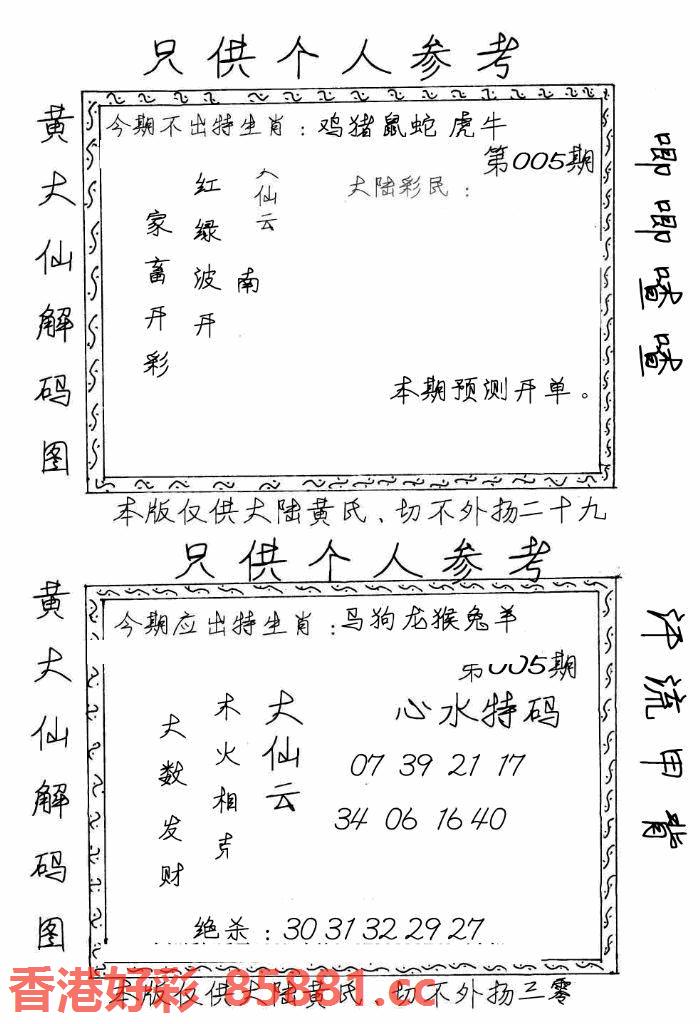 只供个人参考
黄大仙解码图
今期不出特生肖：鸡猪鼠蛇虎牛
第005期
大仙云
大陆彩民：
红绿波开
南
家畜开彩
本期预测开单。
唧唧喳喳
本版仅供大陆黄氏、切不外扬二十九
只供个人参考
黄大仙解码图
今期应出特生肖：马狗龙猴兔羊
005期
大仙云
木火相克
大数发财
心水特码
07 39 21 17
34 06 16 40
绝杀：30 31 32 29 27
汗流甲背
本版仅供大陆黄氏、切不外扬三零
香港好彩 85881.cc